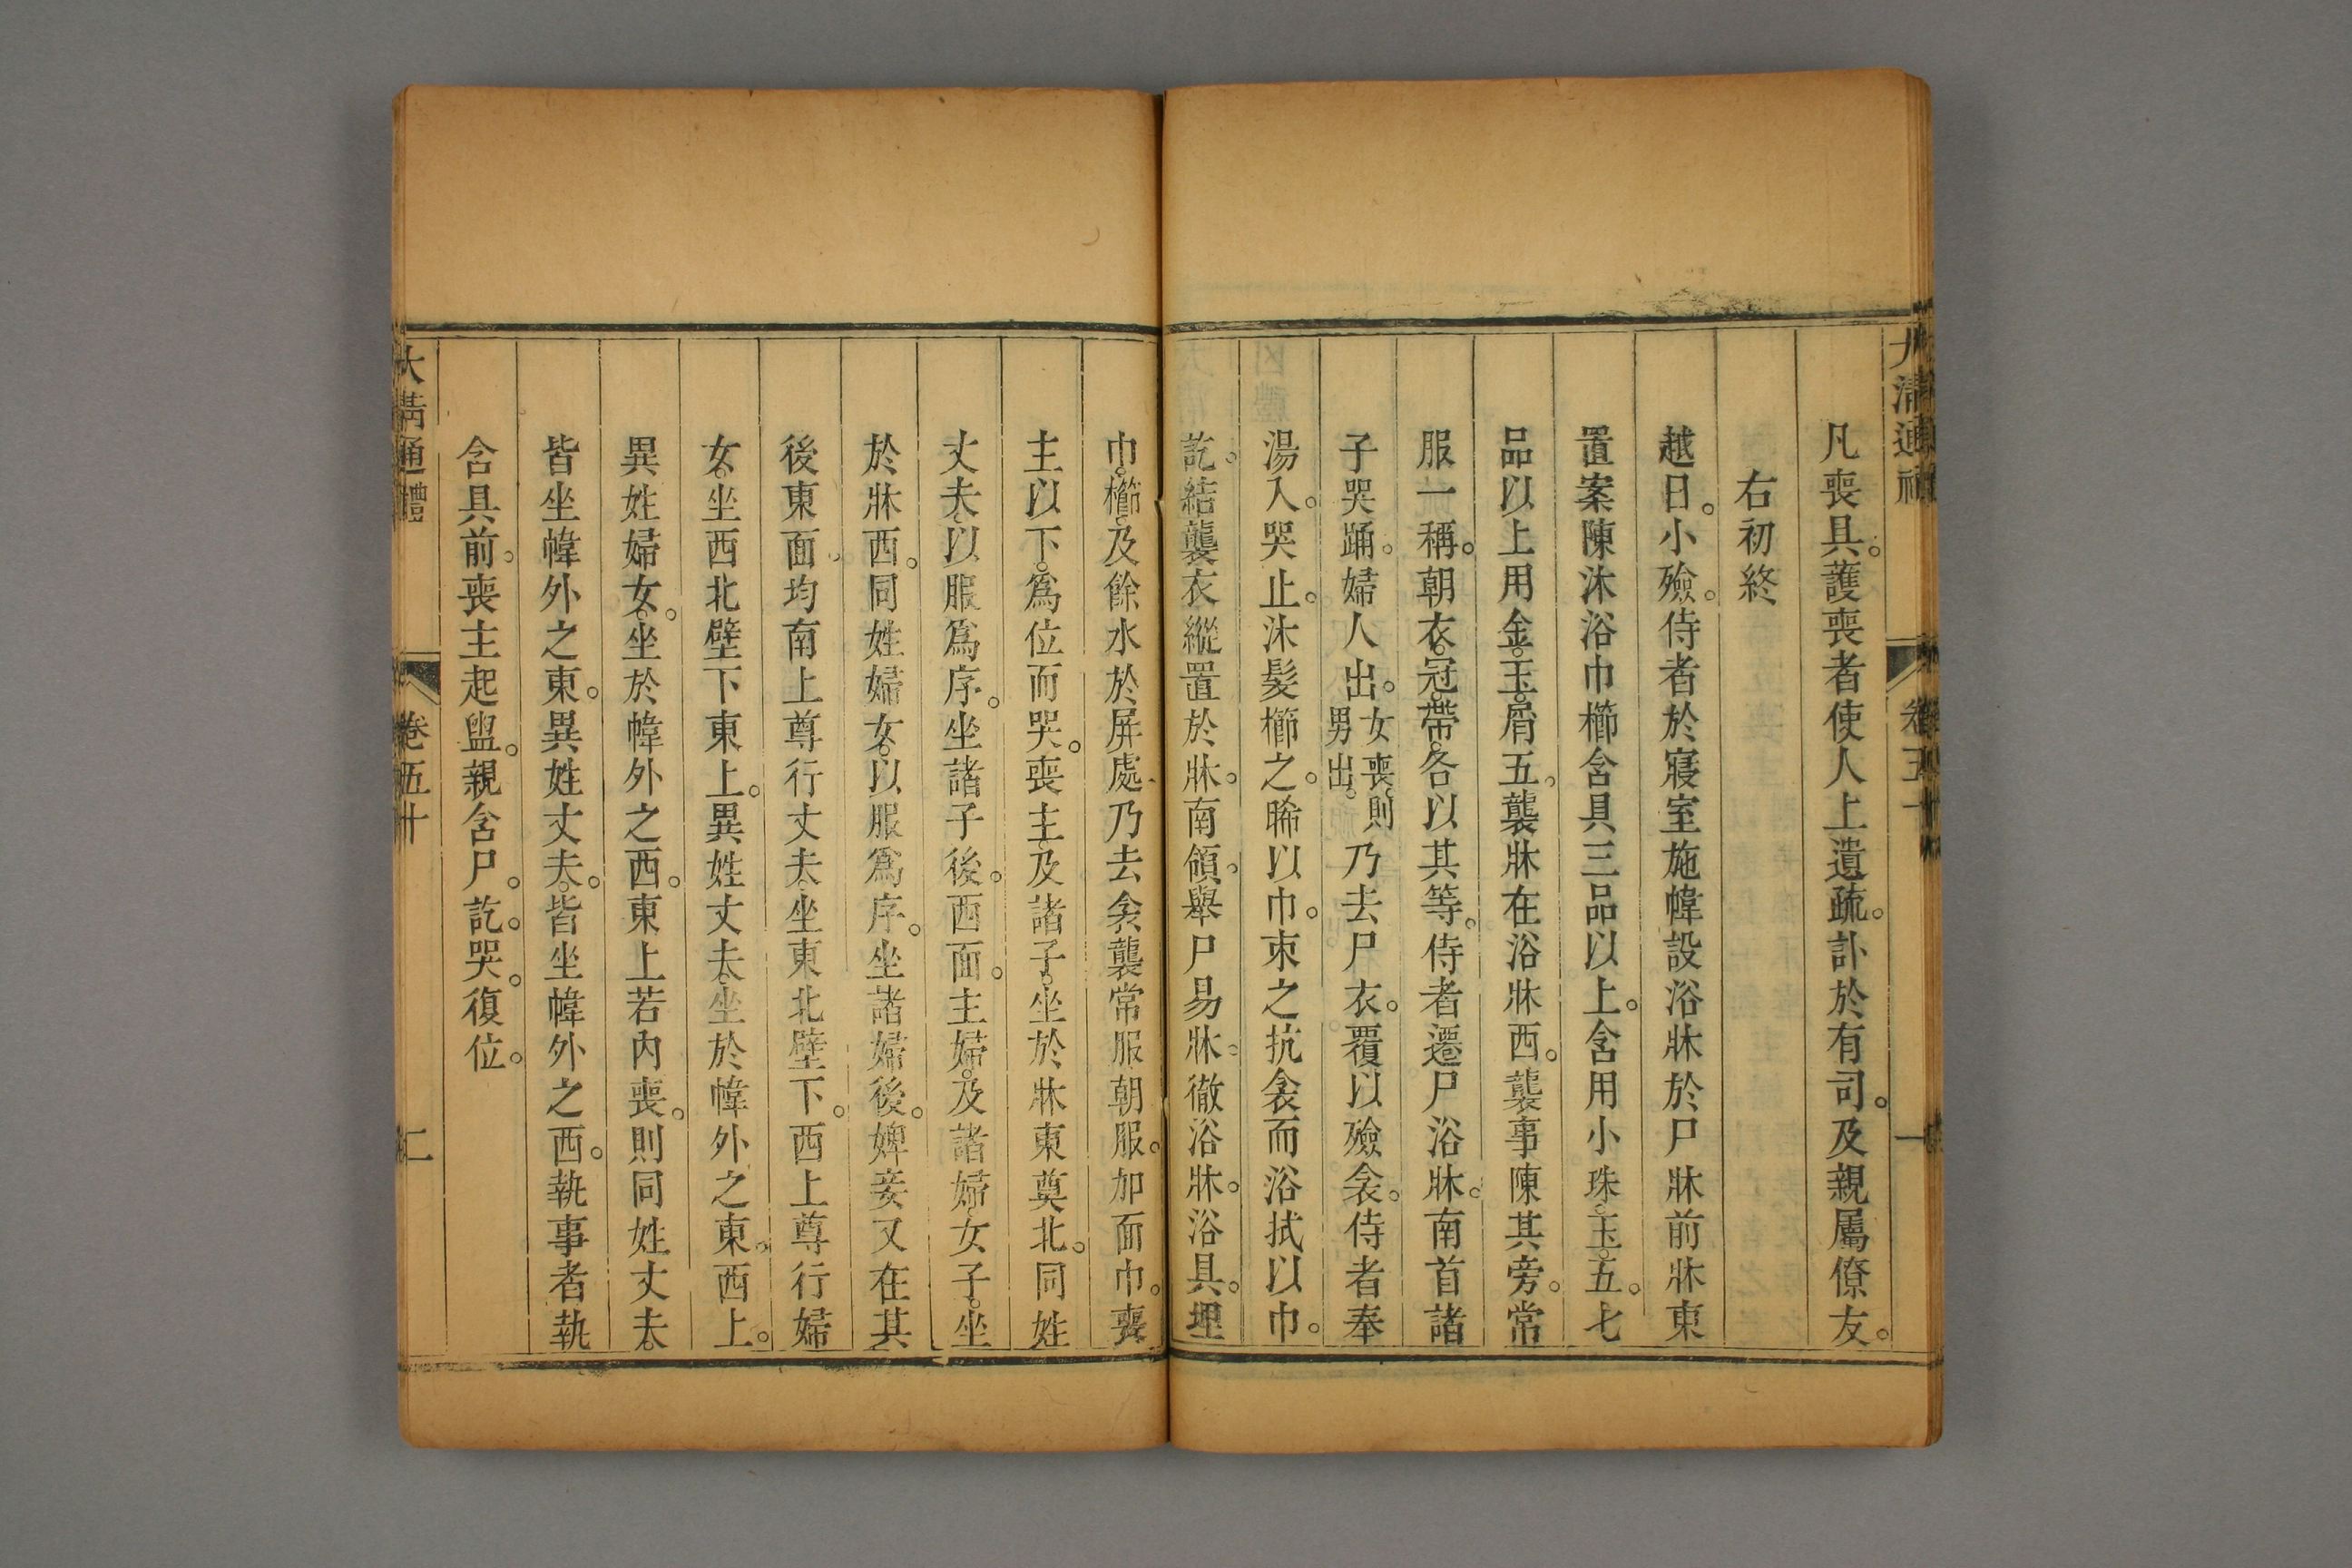 大清通禮 卷五十 一
凡喪具。護喪者使人上遺疏。訃於有司。及親屬僚友。
右初終
越日。小殮。侍者於寢室施幃設浴牀於尸牀前牀東
置案陳沐浴巾櫛含具三品以上。含用小珠。玉。五。七
品以上用金。玉。屑五。襲牀在浴牀西。襲事陳其旁。常
服一稱。朝衣。冠。帶。各以其等。侍者遷尸浴牀。南首諸
子哭踊。婦人出。女喪。則男出。乃去尸衣。覆以殮衾。侍者奉
湯入。哭止。沐髮櫛之。晞以巾。束之抗衾而浴拭以巾。
訖。結襲衣縱置於牀。南領。舉尸易牀。徹浴牀。浴具。埋
巾。櫛。及餘水於屏處乃去衾襲常服朝服。加面巾。喪
主以下。爲位而哭。喪主。及諸子。坐於牀東奠北。同姓
丈夫。以服爲序。坐諸子後。西面。主婦。及諸婦。女子。坐
於牀西。同姓婦女。以服爲序。坐諸婦後。婢妾又在其
後東面。均南上尊行丈夫。坐東北壁下。西上尊行婦
女。坐西北壁下東上。異姓丈夫。坐於幃外之東。西上。
異姓婦女。坐於幃外之西。東上若內喪。則同姓丈夫。
皆坐幃外之東。異姓丈夫。皆坐幃外之西。執事者執
含具前。喪主起盥。親含尸。訖。哭。復位。
大淸通禮 卷五十 二